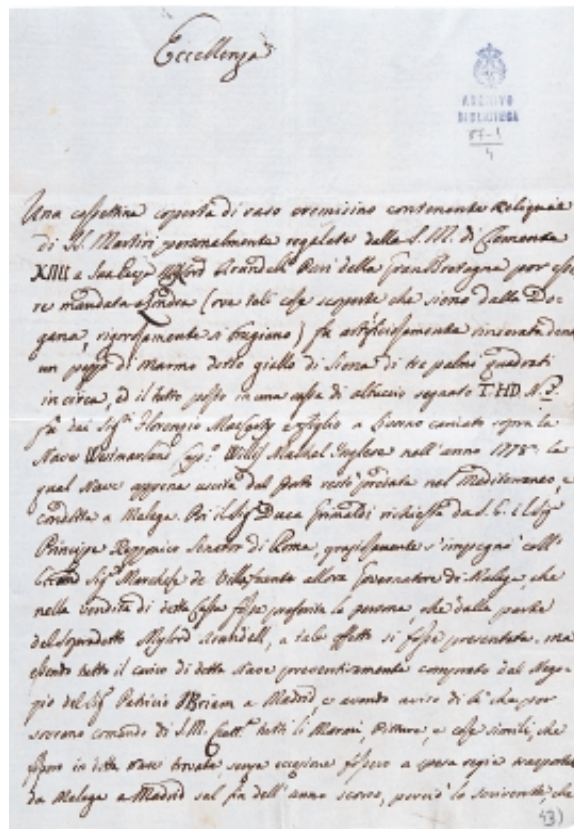 Eccellenza
ARCHIVO
BIBLIOTECA
87-1
4
Una cassettina coperta di raso cremisino contenente Reliquia
di SS. Martiri personalmente regalata dalla S. M. di Clemente
XIII a Sua Ecc.za Mylord Arundell Pari della Gran Bretagna per esse
re mandata a Londra (ove tali cose scoperte che sieno dalla Do-
gana, rigorosamente si bruciano) fu artificiosamente rinserrata dentro
un pezzo di Marmo detto giallo di Siena di tre palmi quadrati
in circa, e il tutto posto in una cassa di abuccio segnato T.HD N.
fu dai Sig.ri e figlio a Livorno caricato sopra la
Nave Westmorland Cap. Willis Machel Inglese nell'anno 1778. la
qual Nave appena uscita dal Porto restò predata nel Mediterraneo, e
condotta a Malaga. Poi il Sig. Duca Grimaldi richiesto da S. E. il Sig.
Principe Rezzonico Senator di Roma, graziosamente s'impegnò coll'
Sig. Marchese de Villafuente allora Governatore di Malaga, che
nella vendita di detta Cassa fosse preferita la persona, che dalla parte
del sopradetto Mylord Arundell, a tale effetto si fosse presentata. ma
essendo tutto il carico di detta Nave preventivamente comprato dal Nego-
zio del Sig. Patrizio OBriem a Madrid, e avendo aviso di là che per
sovrano comando di S. M. Catt. tutti li Marmi, Pitture, e cose simili, che
fossero in detta Nave trovate, senza eccezione fossero a spesa regia trasportate
da Malaga a Madrid sul fin dell'anno scorso, perciò lo scrivente, che
43)